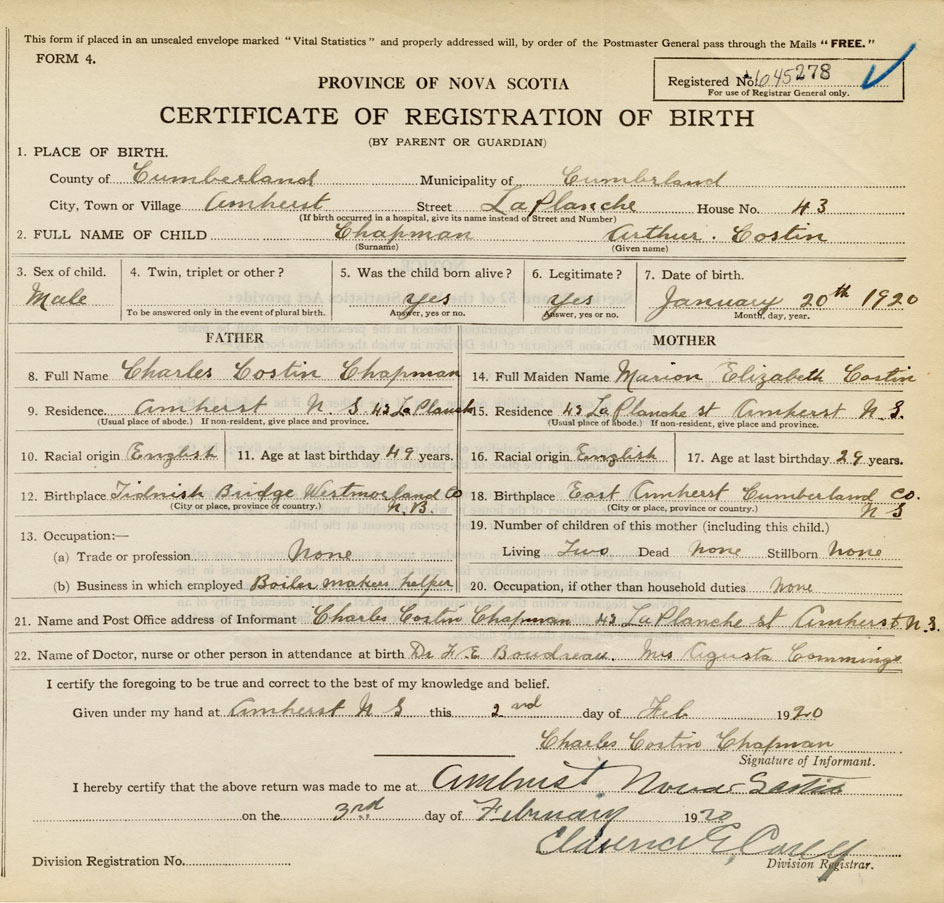 This form if placed in an unsealed envelope marked "Vital Statistics" and properly addressed will, by order of the Postmaster General pass through the Mails "FREE."
FORM 4.
Registered No. 645278
For use of Registrar General only.
PROVINCE OF NOVA SCOTIA
CERTIFICATE OF REGISTRATION OF BIRTH
(BY PARENT OR GUARDIAN)
1. PLACE OF BIRTH.
County of Cumberland Municipality of Cumberland
City, Town or Village Amherst Street La Planche House No. 43
(If birth occurred in a hospital, give its name instead of Street and Number)
2. FULL NAME OF CHILD Chapman Arthur. Costin
(Surname) (Given name)
3. Sex of child. 4. Twin, triplet or other? 5. Was the child born alive? 6. Legitimate? 7. Date of birth.
Male yes yes January 20th 1920
To be answered only in the event of plural birth. Answer, yes or no. Answer, yes or no. Month, day, year.
FATHER MOTHER
8. Full Name Charles Costin Chapman 14. Full Maiden Name Marion Elizabeth Costin
9. Residence. Amherst N. S. 43 La Planch 15. Residence 43 La Planche st Amherst N. S.
(Usual place of abode.) If non-resident, give place and province. (Usual place of abode.) If non-resident, give place and province.
10. Racial origin English 11. Age at last birthday 49 years. 16. Racial origin English 17. Age at last birthday 29 years.
12. Birthplace Tidnish Bridge Westmorland Co 18. Birthplace East Amherst Cumberland Co.
(City or place, province or country.) N. B. (City or place, province or country.) N S
19. Number of children of this mother (including this child.)
13. Occupation:—
(a) Trade or profession None Living Two Dead None Stillborn None
(b) Business in which employed Boiler makers helper 20. Occupation, if other than household duties None
21. Name and Post Office address of Informant Charles Costin Chapman 43 La Planche st Amherst N. S.
22. Name of Doctor, nurse or other person in attendance at birth Dr F. E. Boudreau. Mrs Agusta Commings
I certify the foregoing to be true and correct to the best of my knowledge and belief.
Given under my hand at Amherst N S this 2nd day of Feb 1920
Charles Costin Chapman
Signature of Informant.
I hereby certify that the above return was made to me at Amherst, Nova Scotia
on the 3rd day of February 1920
Clarence G.
Division Registration No. Division Registrar.